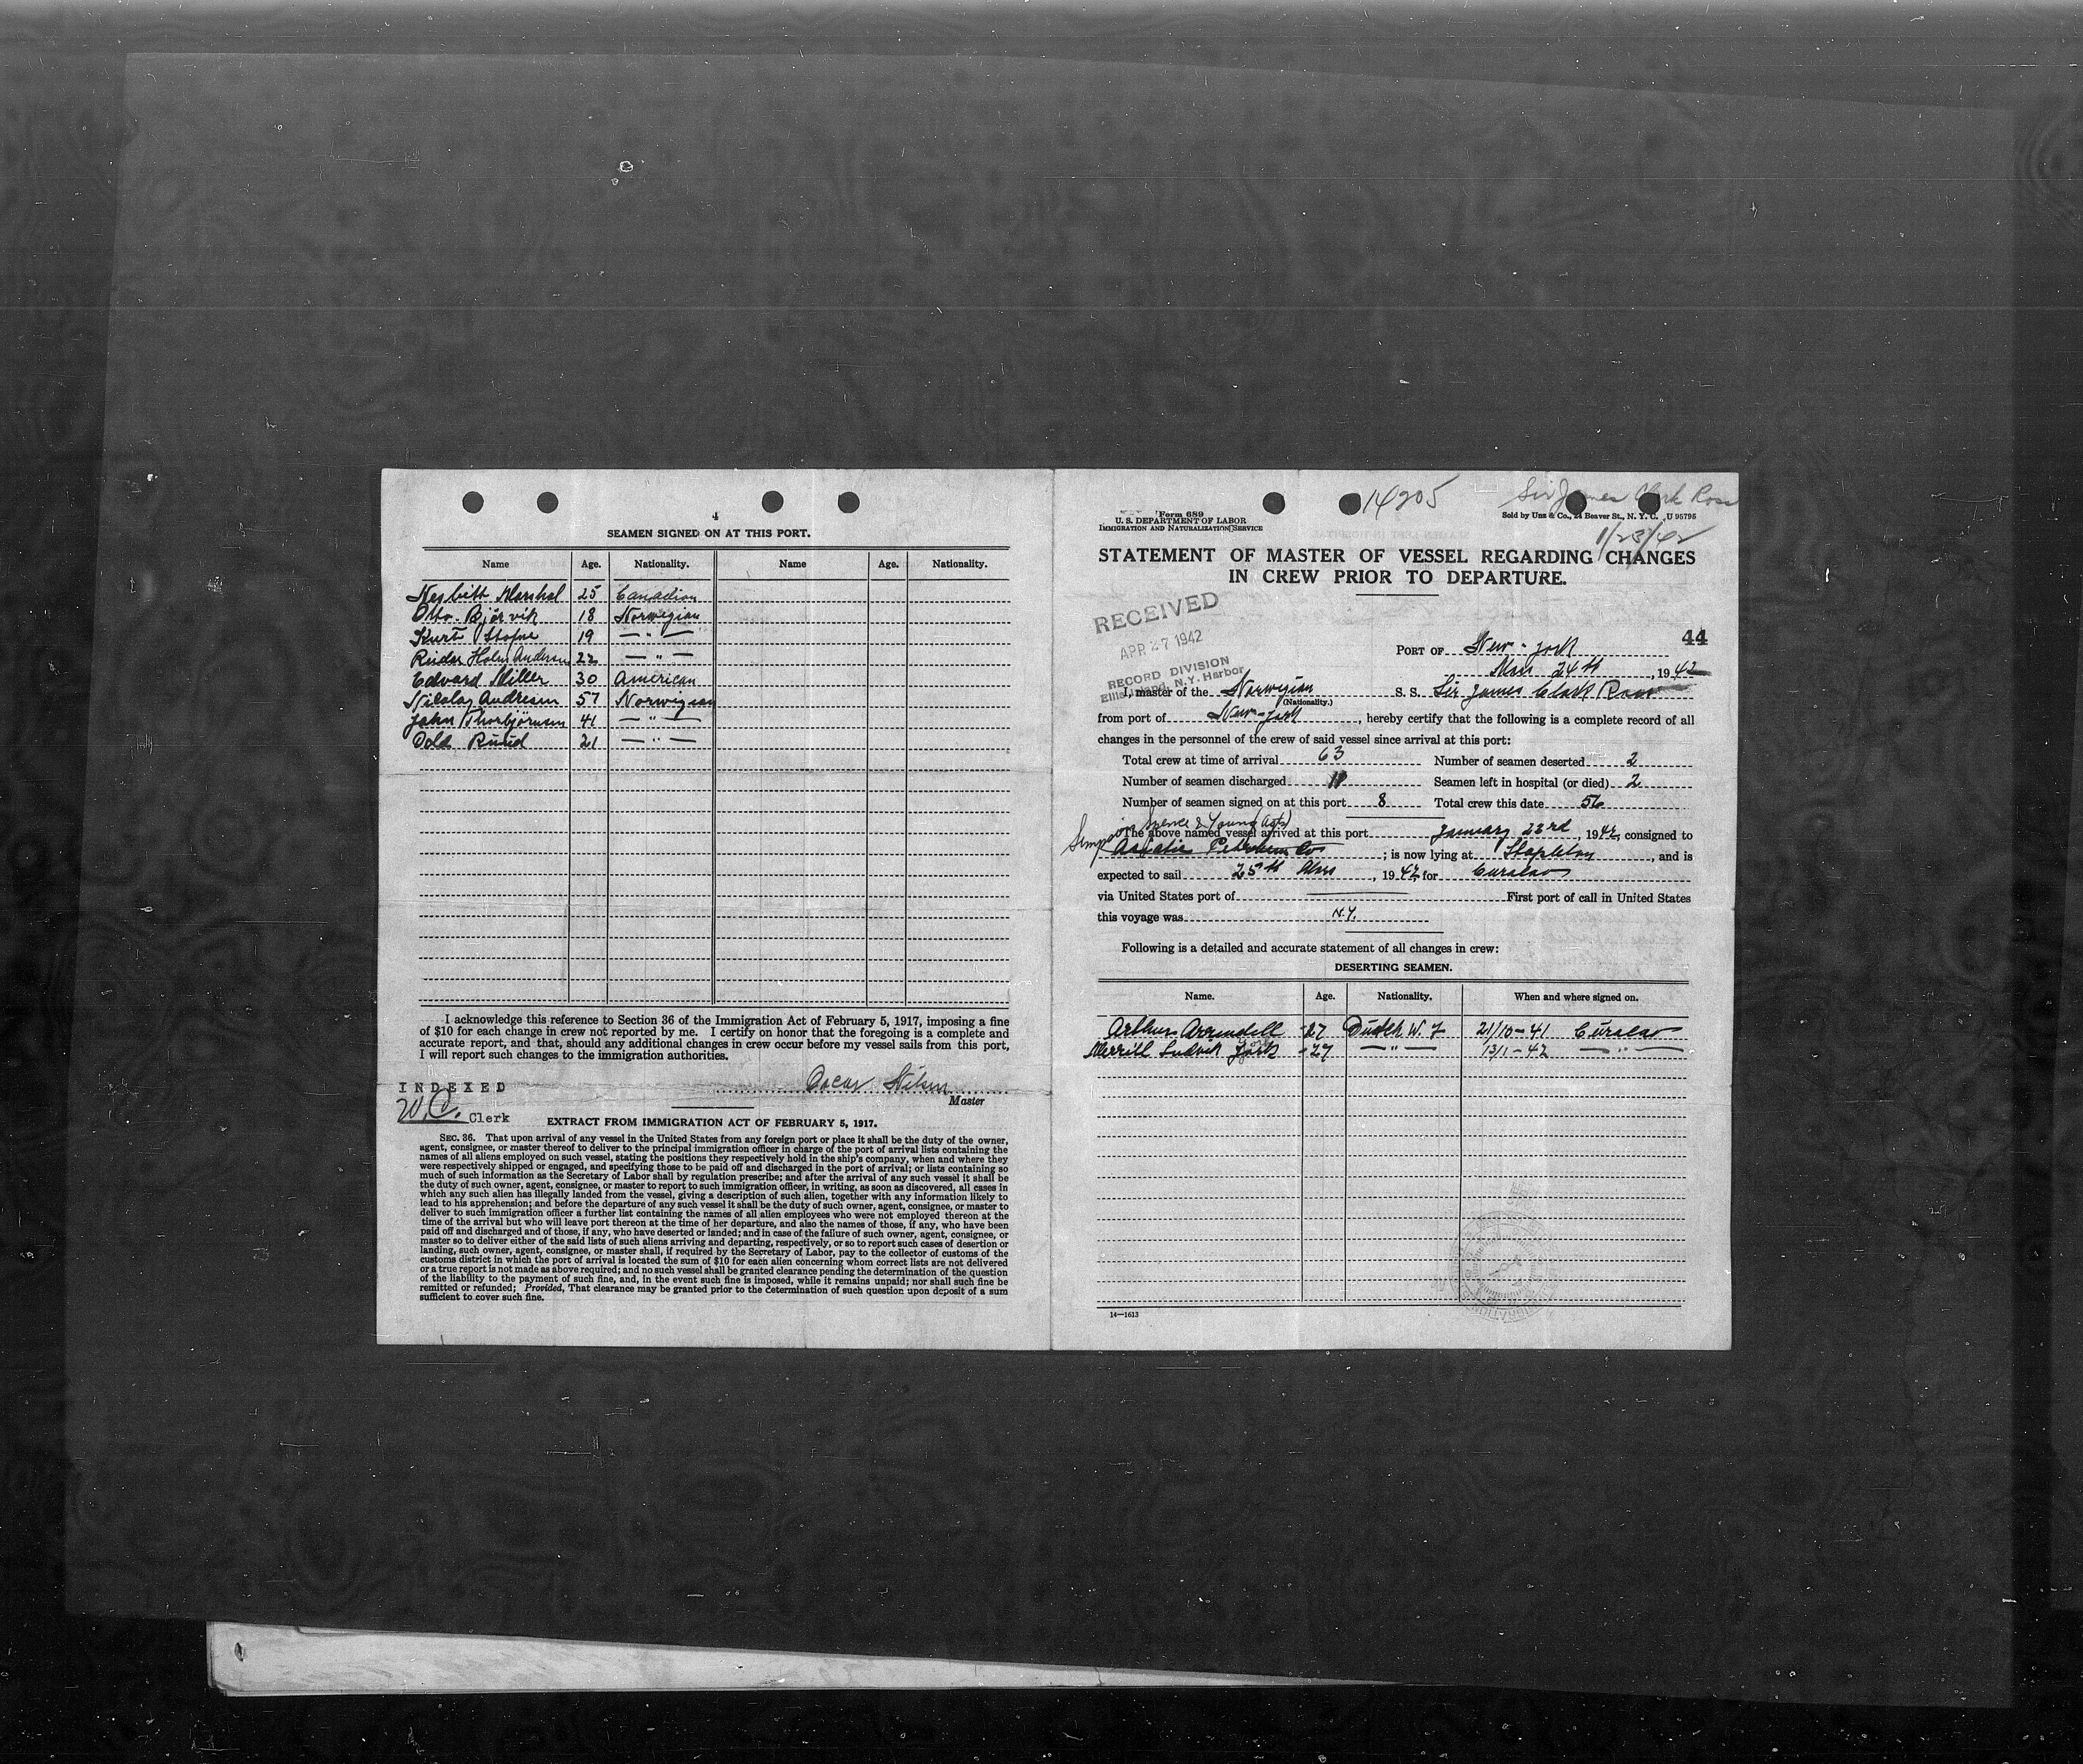 4
SEAMEN SIGNED ON AT THIS PORT.
Name Age. Nationality. Name Age. Nationality.
Nesbitt Marshal 25 Canadian
Otto Bjørvik 18 Norwegian
Kurt 19 — " —
Reidar Holm Andersen 22 — " —
Edvard Miller 30 American
Nikolay Andresen 57 Norwegian
John Thorbjörnsen 41 — " —
Odd Ruud 21 — " —
I acknowledge this reference to Section 36 of the Immigration Act of February 5, 1917, imposing a fine
of $10 for each change in crew not reported by me. I certify on honor that the foregoing is a complete and
accurate report, and that, should any additional changes in crew occur before my vessel sails from this port,
I will report such changes to the immigration authorities.
Oscar Nilsen
Master
INDEXED
W.C. Clerk
EXTRACT FROM IMMIGRATION ACT OF FEBRUARY 5, 1917.
SEC. 36. That upon arrival of any vessel in the United States from any foreign port or place it shall be the duty of the owner,
agent, consignee, or master thereof to deliver to the principal immigration officer in charge of the port of arrival lists containing the
names of all aliens employed on such vessel, stating the positions they respectively hold in the ship's company, when and where they
were respectively shipped or engaged, and specifying those to be paid off and discharged in the port of arrival; or lists containing so
much of such information as the Secretary of Labor shall by regulation prescribe; and after the arrival of any such vessel it shall be
the duty of such owner, agent, consignee, or master to report to such immigration officer, in writing, as soon as discovered, all cases in
which any such alien has illegally landed from the vessel, giving a description of such alien, together with any information likely to
lead to his apprehension; and before the departure of any such vessel it shall be the duty of such owner, agent, consignee, or master to
deliver to such immigration officer a further list containing the names of all alien employees who were not employed thereon at the
time of the arrival but who will leave port thereon at the time of her departure, and also the names of those, if any, who have been
paid off and discharged and of those, if any, who have deserted or landed; and in case of the failure of such owner, agent, consignee, or
master so to deliver either of the said lists of such aliens arriving and departing, respectively, or so to report such cases of desertion or
landing, such owner, agent, consignee, or master shall, if required by the Secretary of Labor, pay to the collector of customs of the
customs district in which the port of arrival is located the sum of $10 for each alien concerning whom correct lists are not delivered
or a true report is not made as above required; and no such vessel shall be granted clearance pending the determination of the question
of the liability to the payment of such fine, and, in the event such fine is imposed, while it remains unpaid; nor shall such fine be
remitted or refunded; Provided, That clearance may be granted prior to the determination of such question upon deposit of a sum
sufficient to cover such fine.
14205
Sir James Clark Ross
Form 689
U. S. DEPARTMENT OF LABOR
IMMIGRATION AND NATURALIZATION SERVICE
Sold by Unz & Co., 24 Beaver St., N. Y. C. U 95795
1/23/42
STATEMENT OF MASTER OF VESSEL REGARDING CHANGES
IN CREW PRIOR TO DEPARTURE.
RECEIVED
APR 27 1942
RECORD DIVISION
Ellis Island, N.Y. Harbor
44
PORT OF New-York
Mars 24th, 1942
I, master of the Norwegian S. S. Sir James Clark Ross
(Nationality.)
from port of New-York, hereby certify that the following is a complete record of all
changes in the personnel of the crew of said vessel since arrival at this port:
Total crew at time of arrival 63 Number of seamen deserted 2
Number of seamen discharged Seamen left in hospital (or died) 2
Number of seamen signed on at this port 8 Total crew this date 56
Spence & Young (Agts)
The above named vessel arrived at this port January 23rd, 1942, consigned to
Asiatic Petroleum Co; is now lying at Stapleton, and is
expected to sail 25th Mars, 1942 for Curacao
via United States port of First port of call in United States
this voyage was N.Y.
Following is a detailed and accurate statement of all changes in crew:
DESERTING SEAMEN.
Name. Age. Nationality. When and where signed on.
Arthur Arrindell 27 Dutch W. I 21/10-41 Curacao
Merrill Ludvik 27 — " — 13/1-42 — " —
14—1613